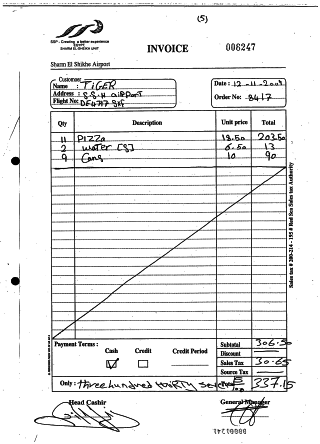 (5)
SSP - Creating a better experience
EGYPT
SHARM EL SHEIKH UNIT
INVOICE 008247
Sharm El Shikhe Airport
Customer
Name : TIGER
Address : S.S.H airport
Flight No:
Date : 12-11-2008
Order No: 8417
Qty Description Unit price Total
11 Pizza 18.50 203.50
2 water [S] 6.50 13
9 Cans 10 90
Sales tax # 200-214-195 # Red Sea Sales tax Authority
Payment Terms :
Cash Credit Credit Period
Subtotal 306.50
Discount
Sales Tax 30.65
Source Tax
Only : three hundred thirty seven 337.15
Head Cashir General Manager